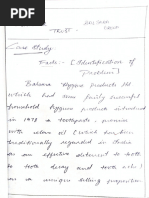 TRUST
Case Study
Facts:- [Identification of
Problem]
Balsara Hygiene Products Ltd
which had some fairly successful
household hygiene products introduced
in 1978 a toothpaste, promise
with clove oil (which has been
traditionally regarded in India
as an effective deterrent to tooth
decay and tooth
as a unique selling proposition